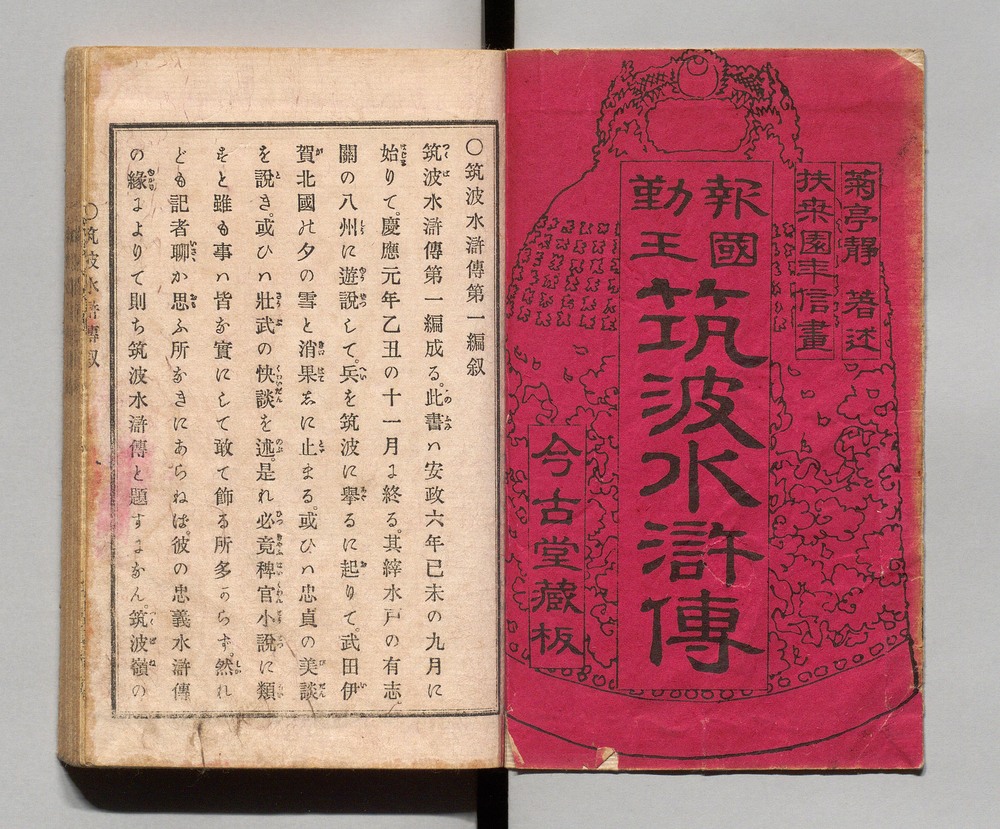 菊亭靜 著述
扶桒園年信畫
報國
勤王
筑波水滸傳
今古堂藏板
〇筑波水滸傳第一編叙
筑波水滸傳第一編成る。此書ハ安政六年已未の九月に
始りて。慶應元年乙丑の十一月ま終る。其縡水戸の有志。
關の八州に遊說して。兵を筑波に擧るに起りて。武田伊
賀北國の夕の雪と消果るに止まる。或ひハ忠貞の美談
を説き。或ひハ壯武の快談を述。是れ必竟稗官小說に類
すと雖も事ハ皆な實にして敢て飾る所多からず。然れ
ども記者聊か思ふ所なきにあらねば。彼の忠義水滸傳
の緣によりて則ち筑波水滸傳と題すになん。筑波嶺の
〇筑波水滸傳叙